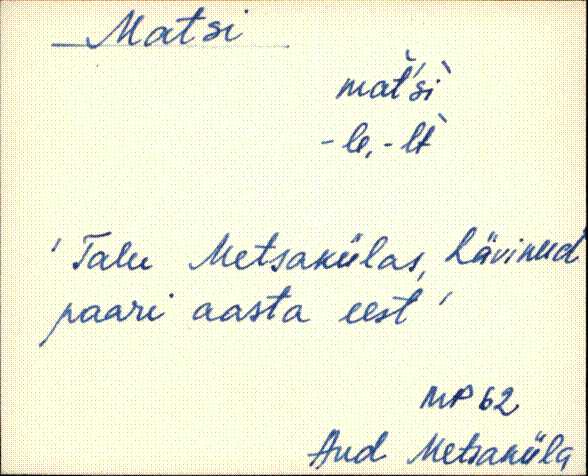 Matsi
mat'si`
-le, -lt`
' Talu Metsakülas, hävinud
paari aasta eest '
MP 62
Aud Metsaküla